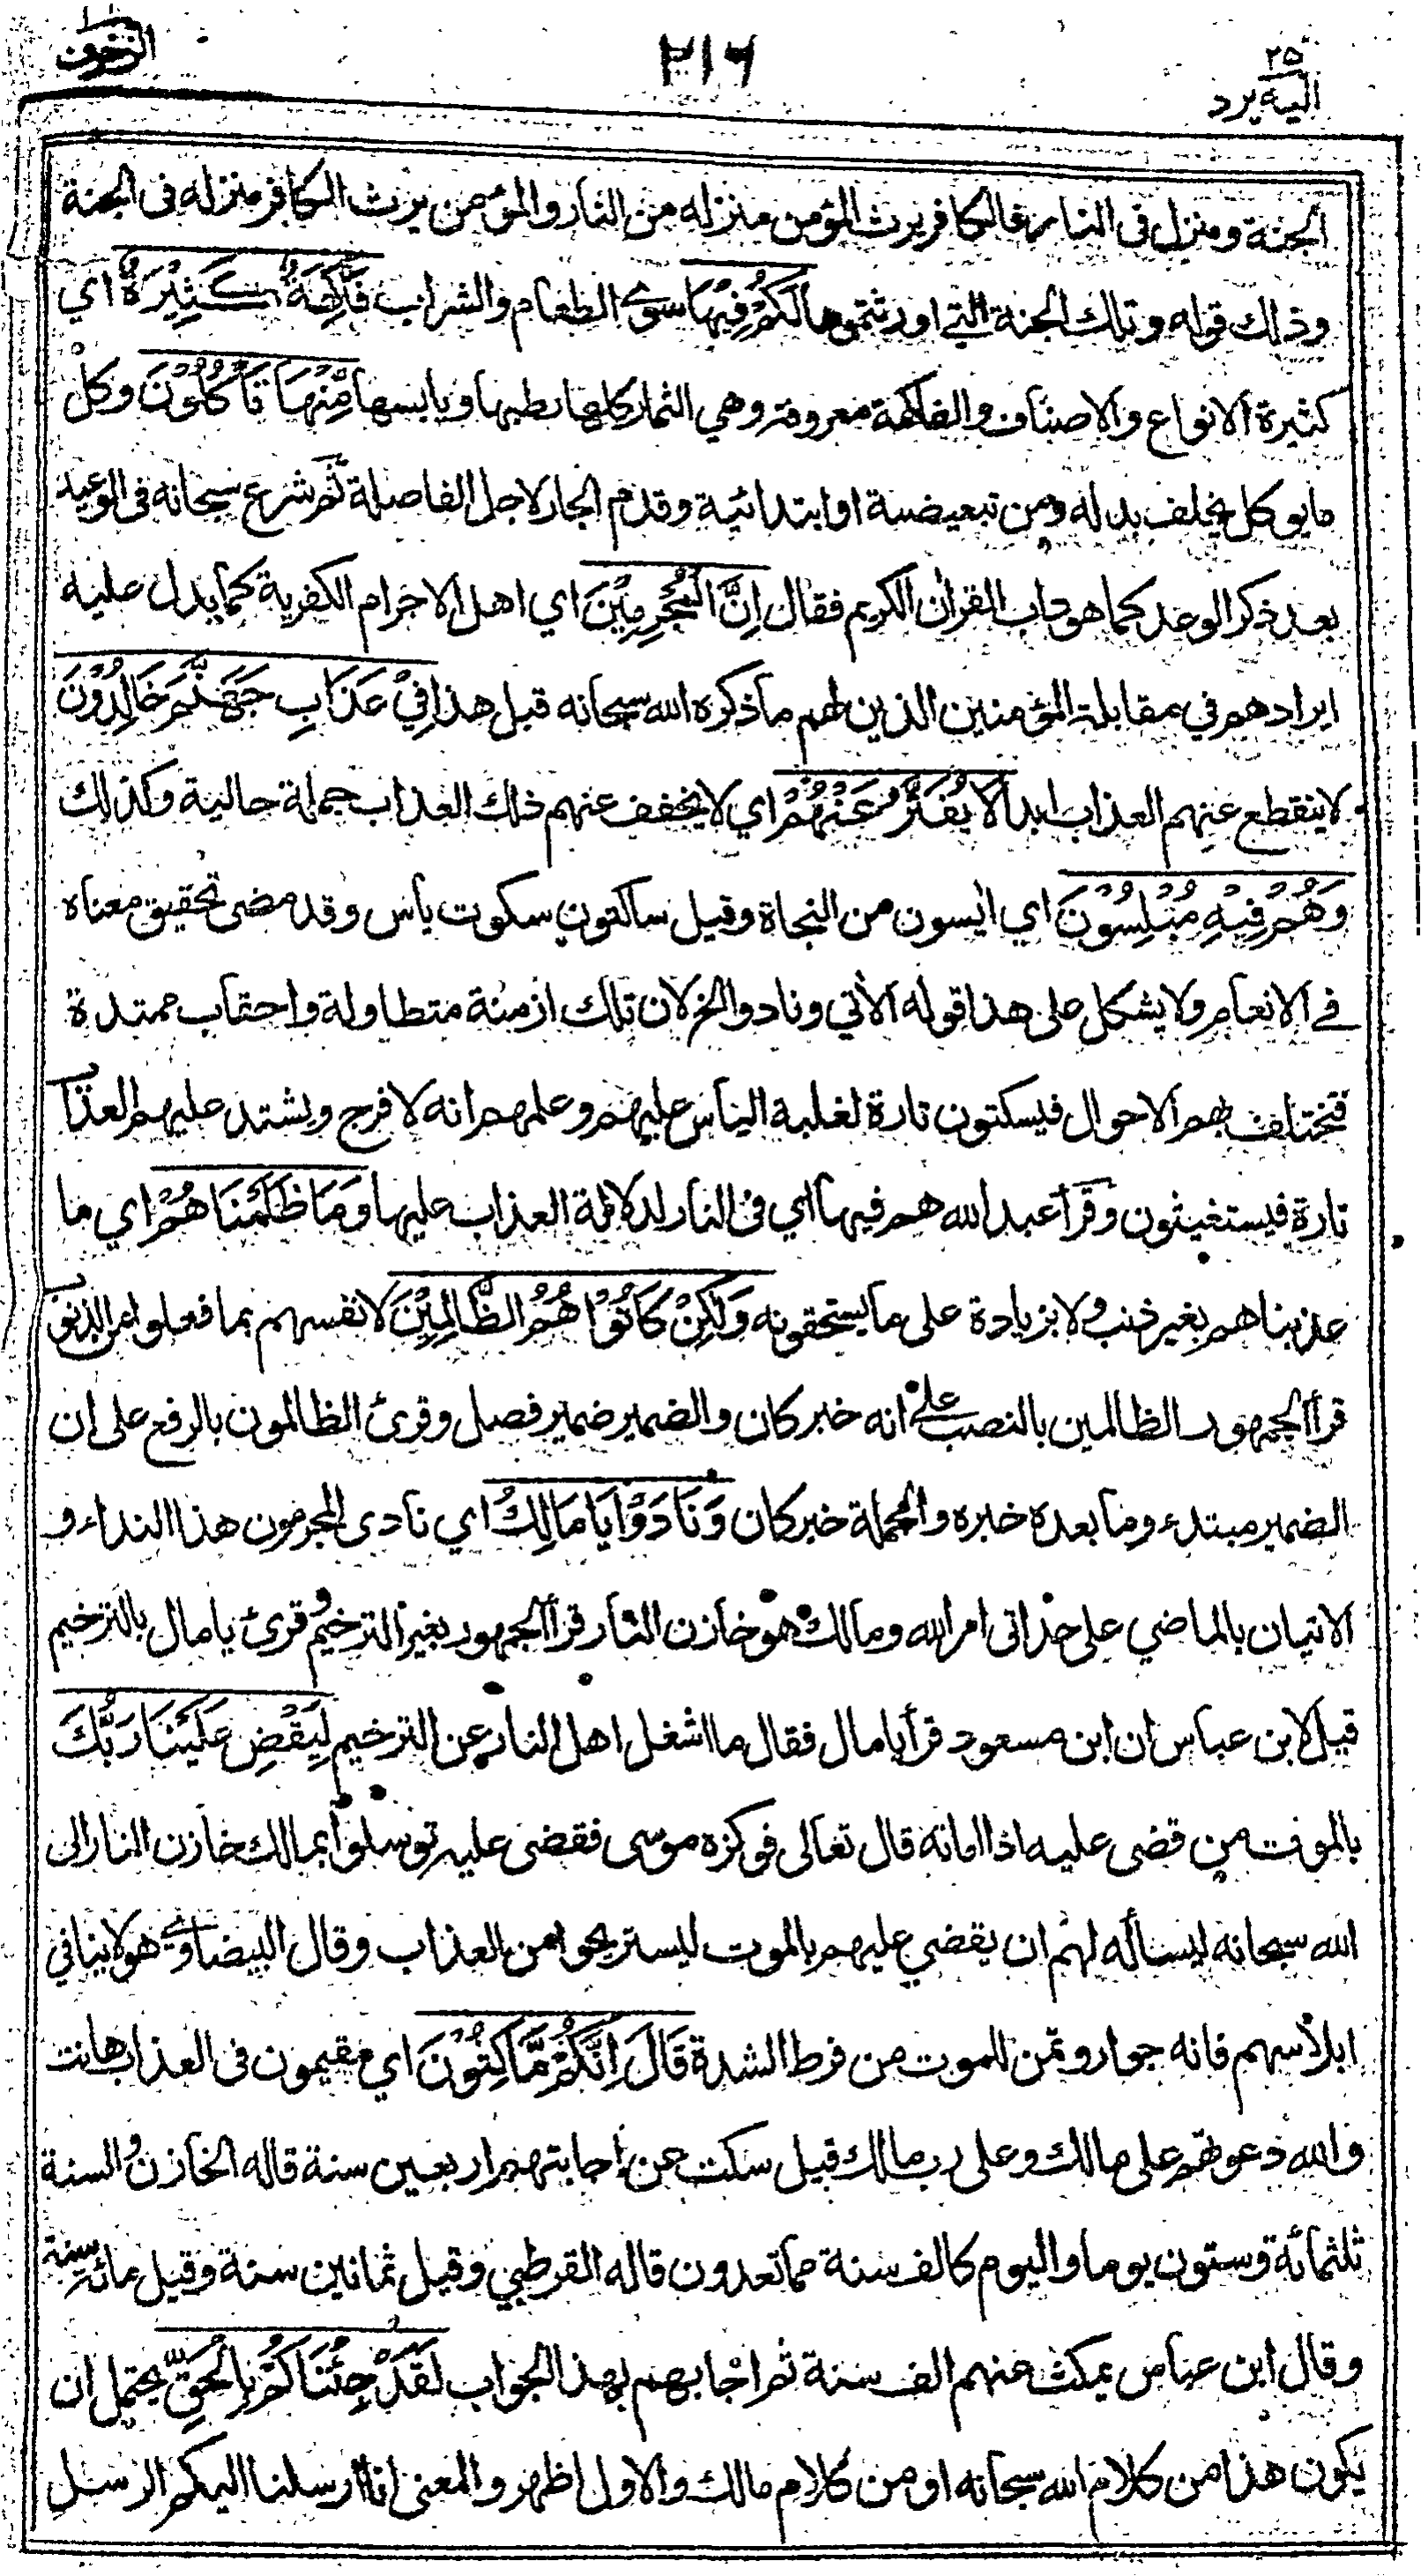 الزخرف
٢١٦
٢٥
اليه يرد
الجنة ومنزل فى النار فالكافر يرث المؤمن منزله من النار والمؤمن يرث الكافر منزله فى الجنة
وذلك قوله وتلك الجنة التي اورثتموها لَكُمْ فِيْهَا سوى الطعام والشراب فَاكِهَةٌ كَثِيْرَةٌ اي
كثيرة الانواع والاصناف والفاكهة معروفة وهي الثمار كلها رطبها ويابسها مِّنْهَا تَأْكُلُوْنَ وكل
مايوكل يخلف بدله ومن تبعيضية او ابتدائية وقدم الجار لاجل الفاصلة ثم شرع سبحانه فى الوعيد
بعد ذكر الوعد كما هو داب القرآن الكريم فقال اِنَّ الْمُجْرِمِيْنَ اي اهل الاجرام الكفرية كما يدل عليه
ايرادهم في مقابلة المؤمنين الذين لهم ماذكره الله سبحانه قبل هذا فِيْ عَذَابِ جَهَنَّمَ خَالِدُوْنَ
لاينقطع عنهم العذاب ابدا لَا يُفَتَّرُ عَنْهُمْ اي لا يخفف عنهم ذلك العذاب جملة حالية وكذلك
وَهُمْ فِيْهِ مُبْلِسُوْنَ اي ايسون من النجاة وقيل ساكتون سكوت يأس وقد مضى تحقيق معناه
في الانعام ولا يشكل على هذا قوله الأتي ونادوا الخ لان تلك ازمنة متطاولة واحقاب ممتدة
فتختلف بهم الاحوال فيسكتون تارة لغلبة اليأس عليهم وعلمهم انه لا فرج ويشتد عليهم العذاب
تارة فيستغيثون وقرأ عبد الله هم فيها اي فى النار لدلالة العذاب عليها وَمَا ظَلَمْنَاهُمْ اي ما
عذبناهم بغير ذنب ولا بزيادة على ما يستحقونه وَلٰكِنْ كَانُوْا هُمُ الظَّالِمِيْنَ لانفسهم بما فعلوا من الذنوب
قرأ الجمهور الظالمين بالنصب على انه خبر كان والضمير ضمير فصل وقرئ الظالمون بالرفع على ان
الضمير مبتدء وما بعده خبره والجملة خبر كان وَنَادَوْا يَا مَالِكُ اي نادى المجرمون هذا النداء و
الاتيان بالماضي على حد اتى امر الله ومالك هو خازن النار قرأ الجمهور بغير الترخيم وقرئ يا مال بالترخيم
قيل لابن عباس ان ابن مسعود قرأ يا مال فقال ما اشغل اهل النار عن الترخيم لِيَقْضِ عَلَيْنَا رَبُّكَ
بالموت من قضى عليه اذا اماته قال تعالى فوكزه موسى فقضى عليه توسلوا بمالك خازن النار الى
الله سبحانه ليسأله لهم ان يقضي عليهم بالموت ليستريحوا من العذاب وقال البيضاوي هو لا ينافي
ابلاسهم فانه جوار وتمن للموت من فرط الشدة قَالَ اِنَّكُمْ مَّاكِثُوْنَ اي مقيمون فى العذاب هانت
والله دعوتهم على مالك وعلى رب مالك قيل سكت عن اجابتهم اربعين سنة قاله الخازن والسنة
ثلثمائة وستون يوما واليوم كالف سنة مما تعدون قاله القرطبي وقيل ثمانين سنة وقيل مائة سنة
وقال ابن عباس يمكث عنهم الف سنة ثم اجابهم بهذا الجواب لَقَدْ جِئْنَاكُمْ بِالْحَقِّ يحتمل ان
يكون هذا من كلام الله سبحانه او من كلام مالك والاول اظهر والمعنى انا ارسلنا اليكم الرسل